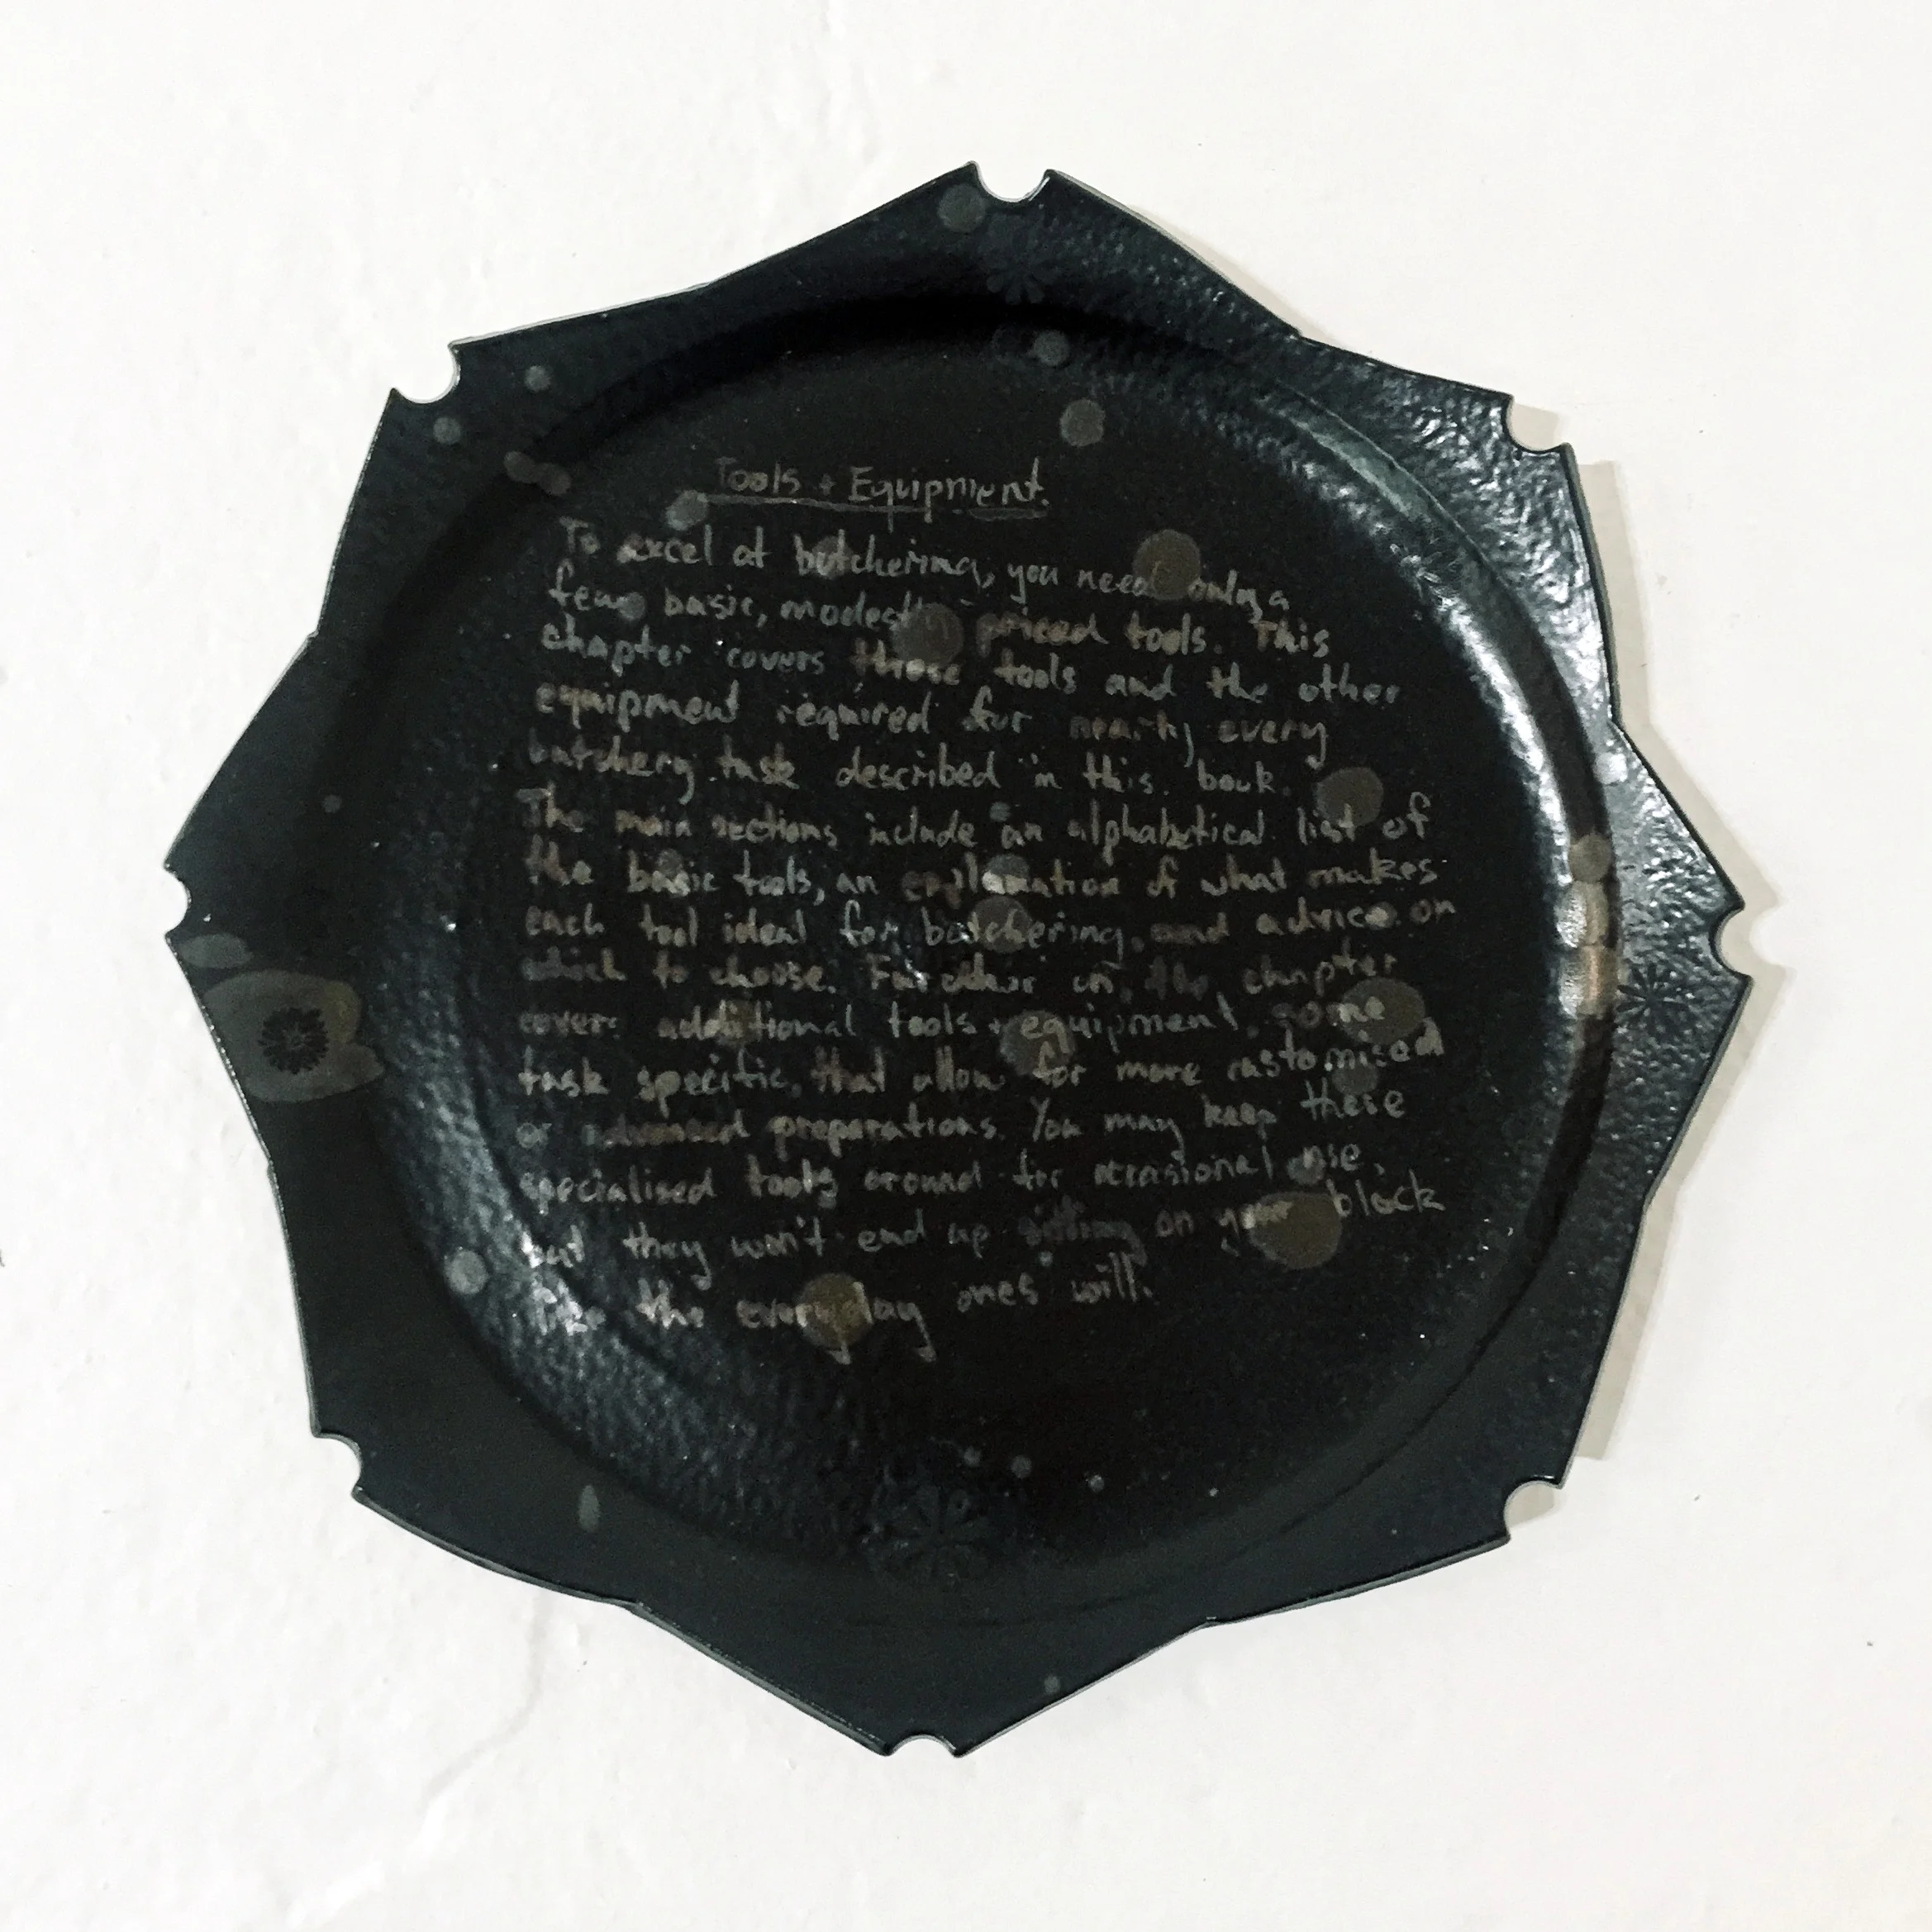 Tools + Equipment.
To excel at butchering, you need only a
few basic, modestly-priced tools. This
chapter covers those tools and the other
equipment required for nearly every
butchery task described in this book.
The main sections include an alphabetical list of
the basic tools, an explanation of what makes
each tool ideal for butchering, and advice on
which to choose. Further in, the chapter
covers additional tools + equipment, some
task specific, that allow for more customised
or advanced preparations. You may keep these
specialised tools around for occasional use,
but they won't end up sitting on your block
like the everyday ones will.